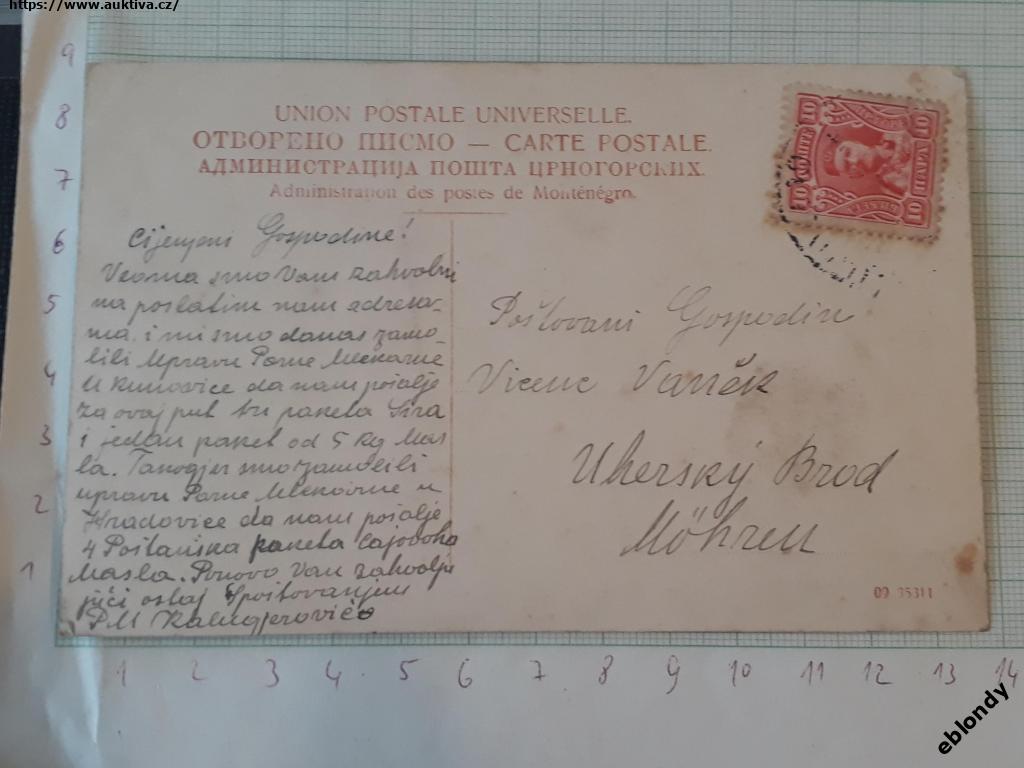 https://www.auktiva.cz/
9
8
7
6
5
4
3
2
1
UNION POSTALE UNIVERSELLE.
ОТВОРЕНО ПИСМО — CARTE POSTALE.
АДМИНИСТРАЦИЈА ПОШТА ЦРНОГОРСКИХ.
Administration des postes de Monténégro.
10 10
ПАРА
10 10
Cijenjeni Gospodine!
Veoma smo Vam zahvalni
na poslatim nam adresa-
ma i mi smo danas zamo-
lili Upravu Parne Mlekarne
u Kunovice da nam pošalje
za ovaj put tri paketa Sira
i jedan paket od 5 kg Mas
la. Takogjer smo zamolili
upravu Parne Mlekarne u
Hradovice da nam pošalje
4 Poštanska paketa Čajovoga
Masla. Ponovo Vam zahvalju
jući ostaj Spoštovanjem
P M Kalugjerović
Poštovani Gospodin
Vicenc Vaněk
Uherský Brod
Möhren
09 35311
1 2 3 4 5 6 7 8 9 10 11 12 13 14
eblondy